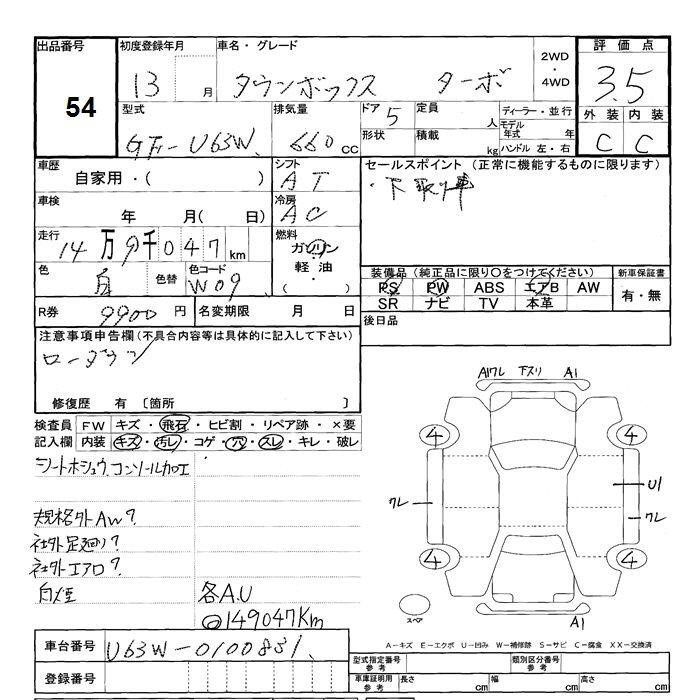 出品番号 初度登録年月 車名・グレード 2WD ・ 4WD 評価点
54 13 月 タウンボックス ターボ 3.5
型式 排気量 ドア 5 定員 人 ディーラー・並行 外装 内装
GF-U63W 660 cc 形状 積載 kg モデル年式 年 C C
ハンドル 左・右
車歴 シフト セールスポイント (正常に機能するものに限ります)
自家用・( ) AT ・下取り車
車検 冷房
年 月( 日) AC
走行 燃料
14万9千047km ガソリン
色 色替 色コード 軽油 装備品 (純正品に限り○をつけてください) 新車保証書
白 W09 ・( ) PS PW ABS エアB AW 有・無
SR ナビ TV 本革
R券 9900円 名変期限 月 日 後日品
注意事項申告欄 (不具合内容等は具体的に記入して下さい)
ローダウン
修復歴 有 〔箇所 〕
A1ワレ 下スリ A1
検査員 FW キズ・飛石・ヒビ割・リペア跡・×要
記入欄 内装 キズ・汚レ・コゲ・穴・スレ・キレ・破レ
シートホシュウ、コンソール加工
4 4
ワレ U1
ワレ
規格外AW?
社外足廻り?
社外エアロ?
4 4
白煙 各A.U
@149047Km
スペア A1
A-キズ E-エクボ U-凹み W-補修跡 S-サビ C-腐食 XX-交換済
車台番号 U63W-0100831
型式指定番号 参考 類別区分番号 参考
登録番号 車庫証明用 参考 長さ cm 幅 cm 高さ cm